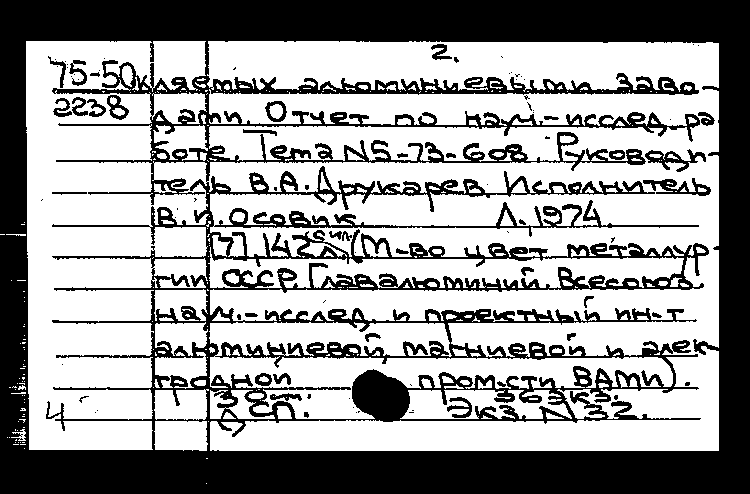 2.
75-50 кляемых алюминиевыми заво-
2238 дами. Отчет по науч.-исслед. ра
боте. Тема N5-73-608. Руководи-
тель В.А. Друкарев. Исполнитель
В.П. Осовик. Л., 1974.
[7], 142 л. с ил. (М-во цвет металлур-
гии СССР. Главалюминий. Всесоюз.
науч.-исслед. и проектный ин-т
алюминиевой, магниевой и элек-
тродной пром-сти. ВАМИ).
36 экз.
4 СП. Экз. N 32.